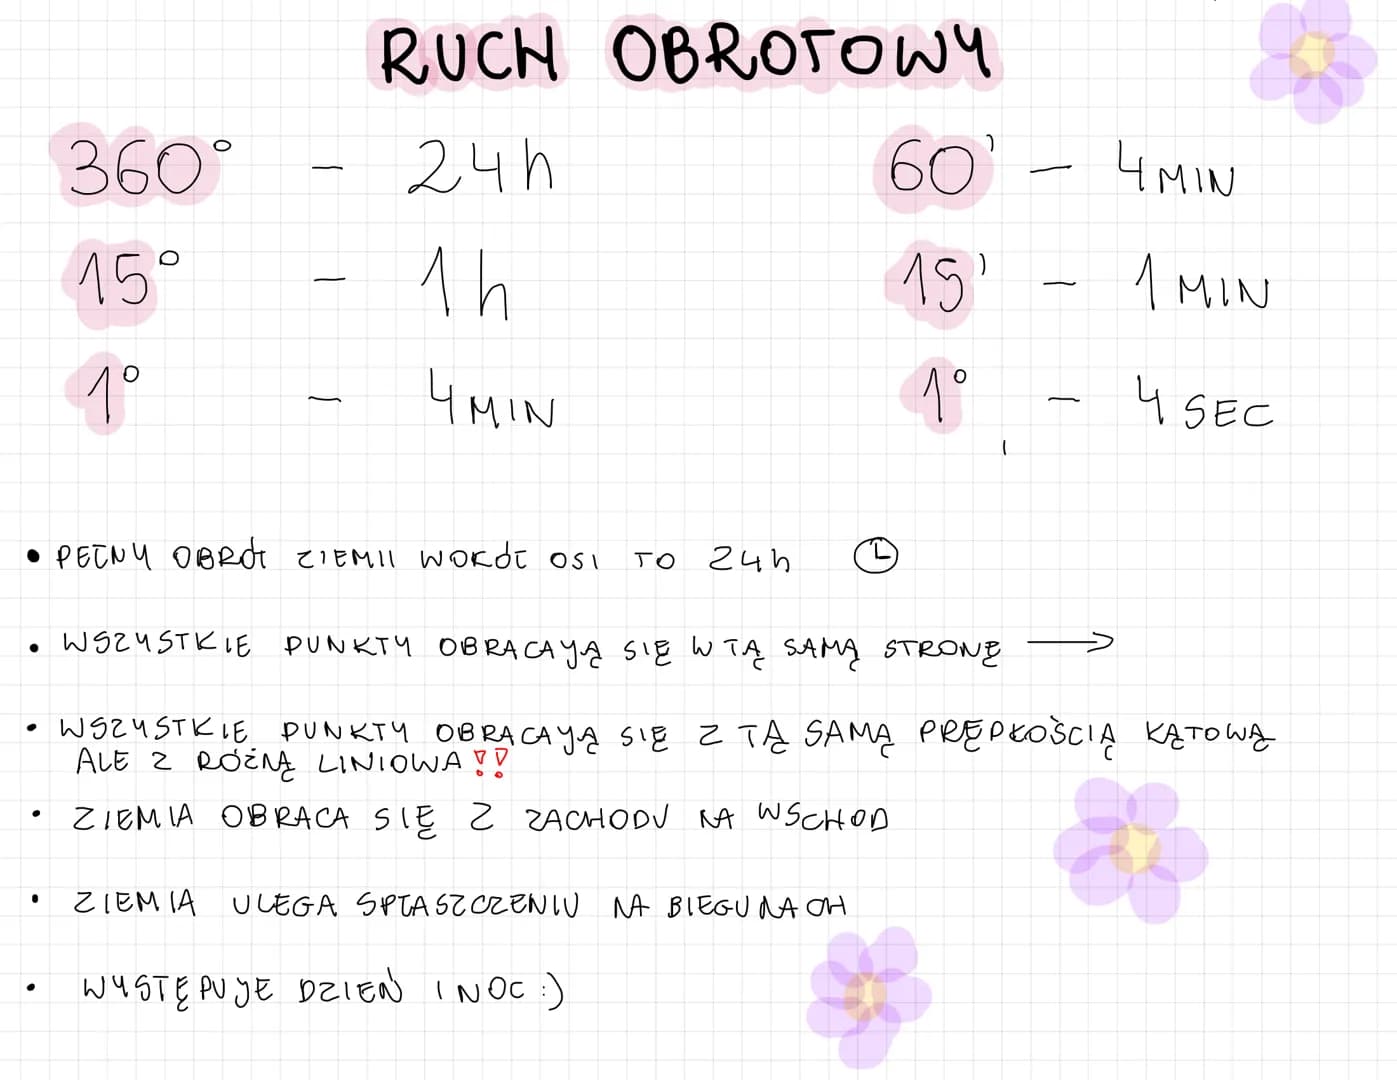 RUCH OBROTOWY
360° - 24h
60' - 4 MIN
15° - 1h
15' - 1 MIN
1° - 4 MIN
1° - 4 SEC
• PEŁNY OBRÓT ZIEMII WOKÓŁ OSI TO 24h
• WSZYSTKIE PUNKTY OBRACAJĄ SIĘ W TĄ SAMĄ STRONĘ →
• WSZYSTKIE PUNKTY OBRACAJĄ SIĘ Z TĄ SAMĄ PRĘDKOŚCIĄ KĄTOWĄ
ALE Z RÓŻNĄ LINIOWA !!
• ZIEMIA OBRACA SIĘ Z ZACHODU NA WSCHOD
• ZIEMIA ULEGA SPŁASZCZENIU NA BIEGUNACH
• WYSTĘPUJE DZIEŃ I NOC :)